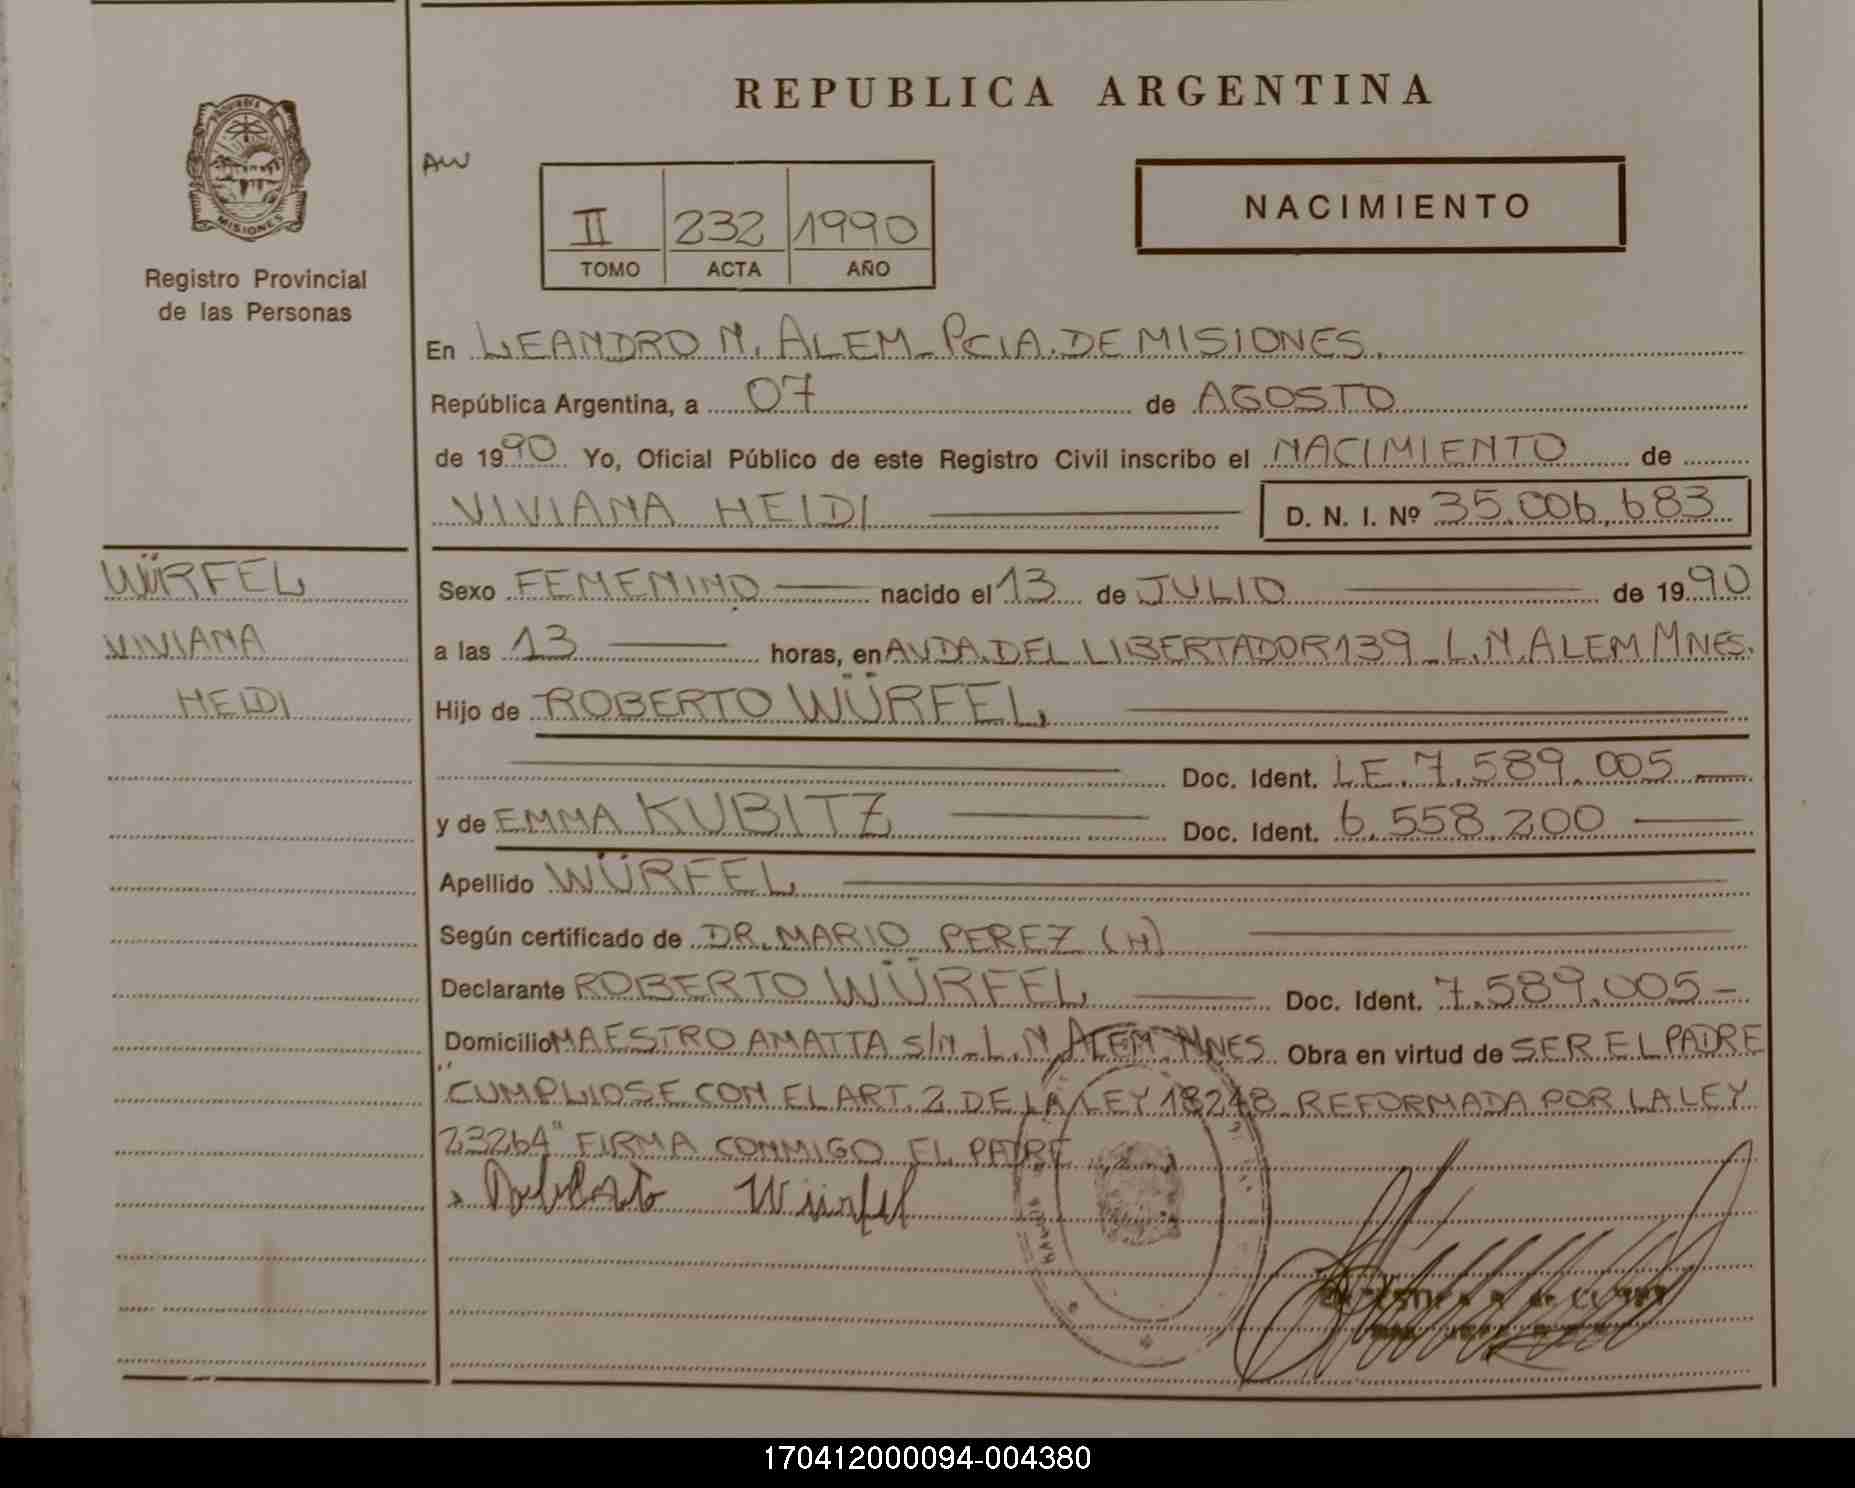 REPUBLICA ARGENTINA
MISIONES
Registro Provincial
de las Personas
AW
II 232 1990
TOMO ACTA AÑO
NACIMIENTO
En LEANDRO N. ALEM - PCIA. DE MISIONES.
República Argentina, a 07 de AGOSTO
de 1990 Yo, Oficial Público de este Registro Civil inscribo el NACIMIENTO de
VIVIANA HEIDI D. N. I. Nº 35.006.683
WÜRFEL
VIVIANA
HEIDI
Sexo FEMENINO nacido el 13 de JULIO de 1990
a las 13 horas, en AVDA. DEL LIBERTADOR 139 - L.N. ALEM MNES.
Hijo de ROBERTO WÜRFEL,
Doc. Ident. L.E. 7.589.005
y de EMMA KUBITZ Doc. Ident. 6.558.200
Apellido WÜRFEL
Según certificado de DR. MARIO PEREZ (H)
Declarante ROBERTO WÜRFEL Doc. Ident. 7.589.005 -
Domicilio MAESTRO AMATTA S/N - L.N. ALEM MNES Obra en virtud de SER EL PADRE
"CUMPLIOSE CON EL ART. 2 DE LA LEY 18248 REFORMADA POR LA LEY
23264" FIRMA CONMIGO EL PADRE
Roberto Würfel
170412000094-004380